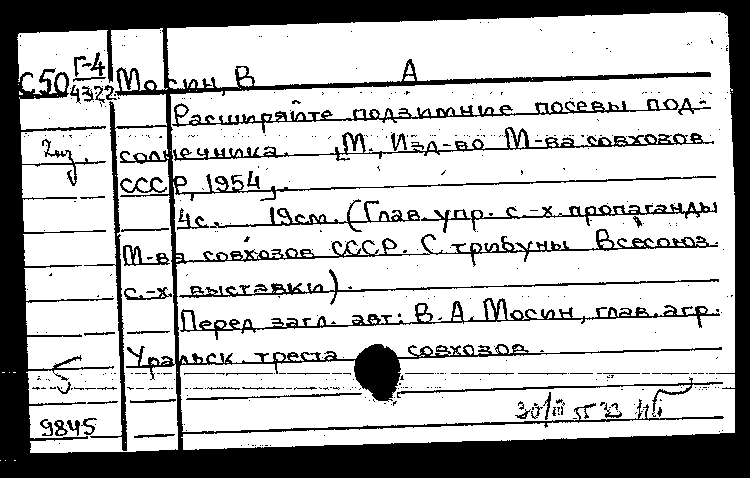 С50 Г-4 Мосин, В А
4322
Расширяйте подзимние посевы под-
2 из. солнечника. , М., Изд-во М-ва совхозов
СССР, 1954,.
4с. 19см. (Глав. упр. с.-х. пропаганды
М-ва совхозов СССР. С трибуны Всесоюз.
с.-х. выставки).
Перед загл. авт: В. А. Мосин, глав. агр.
Уральск. треста совхозов.
5
9845